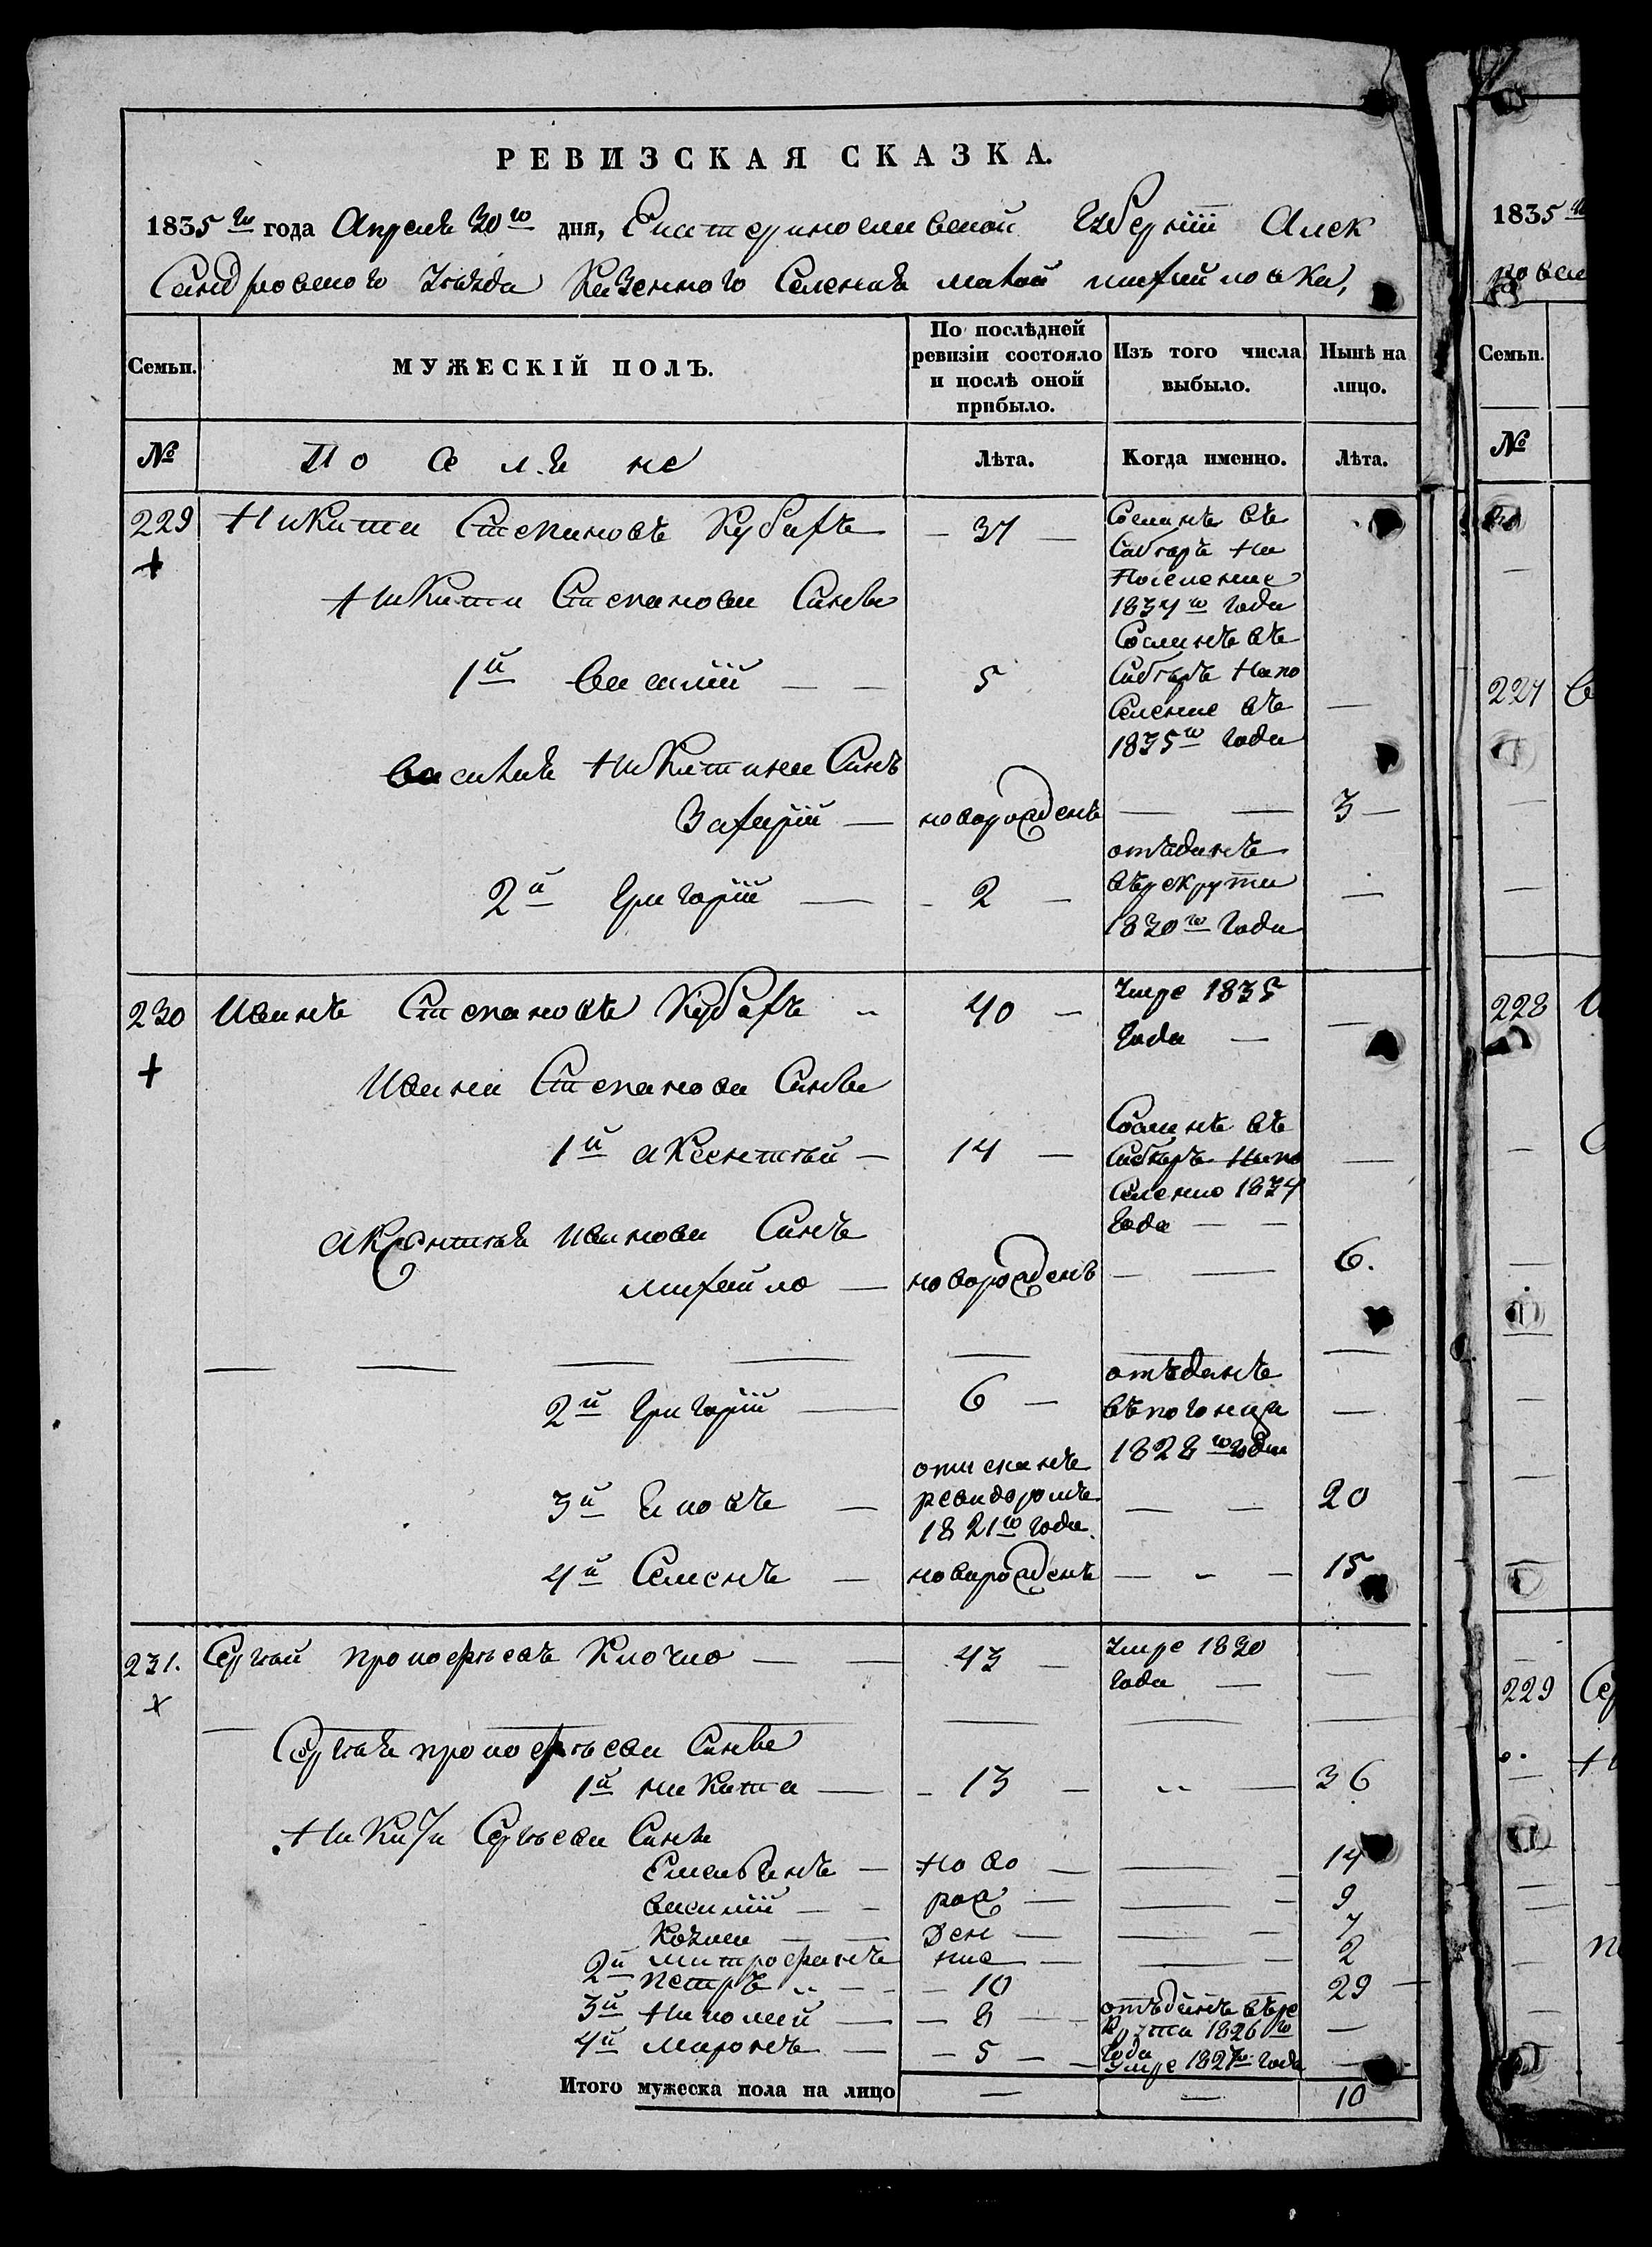 РЕВИЗСКАЯ СКАЗКА.
1835 го года Апреля 30 го дня, Екатеринославской Губернiи Алек
Сандровского Уезда Казенного Селения малой михайловки,
Семьи.
МУЖЕСКIЙ ПОЛЪ.
По послѣдней ревизiи состояло и послѣ оной прибыло.
Изъ того числа выбыло.
Нынѣ на лицо.
№
Поселяне
Лѣта.
Когда именно.
Лѣта.
229 Никита Степановъ Кубахъ — 37 — Сосланъ въ
Сибгиръ На
Поселение
1834 го Года
Никиты Степанова Синве
1й Василiй — — 5 Сосланъ въ
Сибгиръ На по
Селение въ
1835 го Года —
Василия Никитина Синъ
Захарiй — новорожденъ — — 3 —
2й Григорiй — - 2 — отъданъ
въ рекруты
1830 го Года —
230 Иванъ Степановъ Кубахъ 40 — Умре 1835
Года — —
Ивана Степанова Синве
1й Аксентий — 14 — Сосланъ въ
Сибгиръ На по
Селению 1834
Года — — —
Аксентия Иванова Синъ
михайло — новорожденъ — — 6.
2й Григорiй — 6 — отъданъ
въ погонци
1828 го Года —
3й Яковъ — отисканъ
ревидоромъ
1821 го Года. — — 20
4й Семенъ — новорожденъ — - — 15
231. Сергий прокофъевъ Клочко — — 43 — Умре 1830
Года — —
Сергия прокофъева Синве
1й никита — - 13 — — 36
Никити Сергъева Сины
Емельянъ — Ново — — 14
василiй — - рож — — 9
Козма — — Ден — — 7
митрофанъ ние — — 2
2й петръ - 10 29 —
3й Николай — - 8 — отъданъ въ ре
Крути 1826 го
Года —
4й Миронъ — - 5 — Умре 1827 го Года —
Итого мужеска пола на лицо — — 10
1835
Семьи.
№
227
228
229